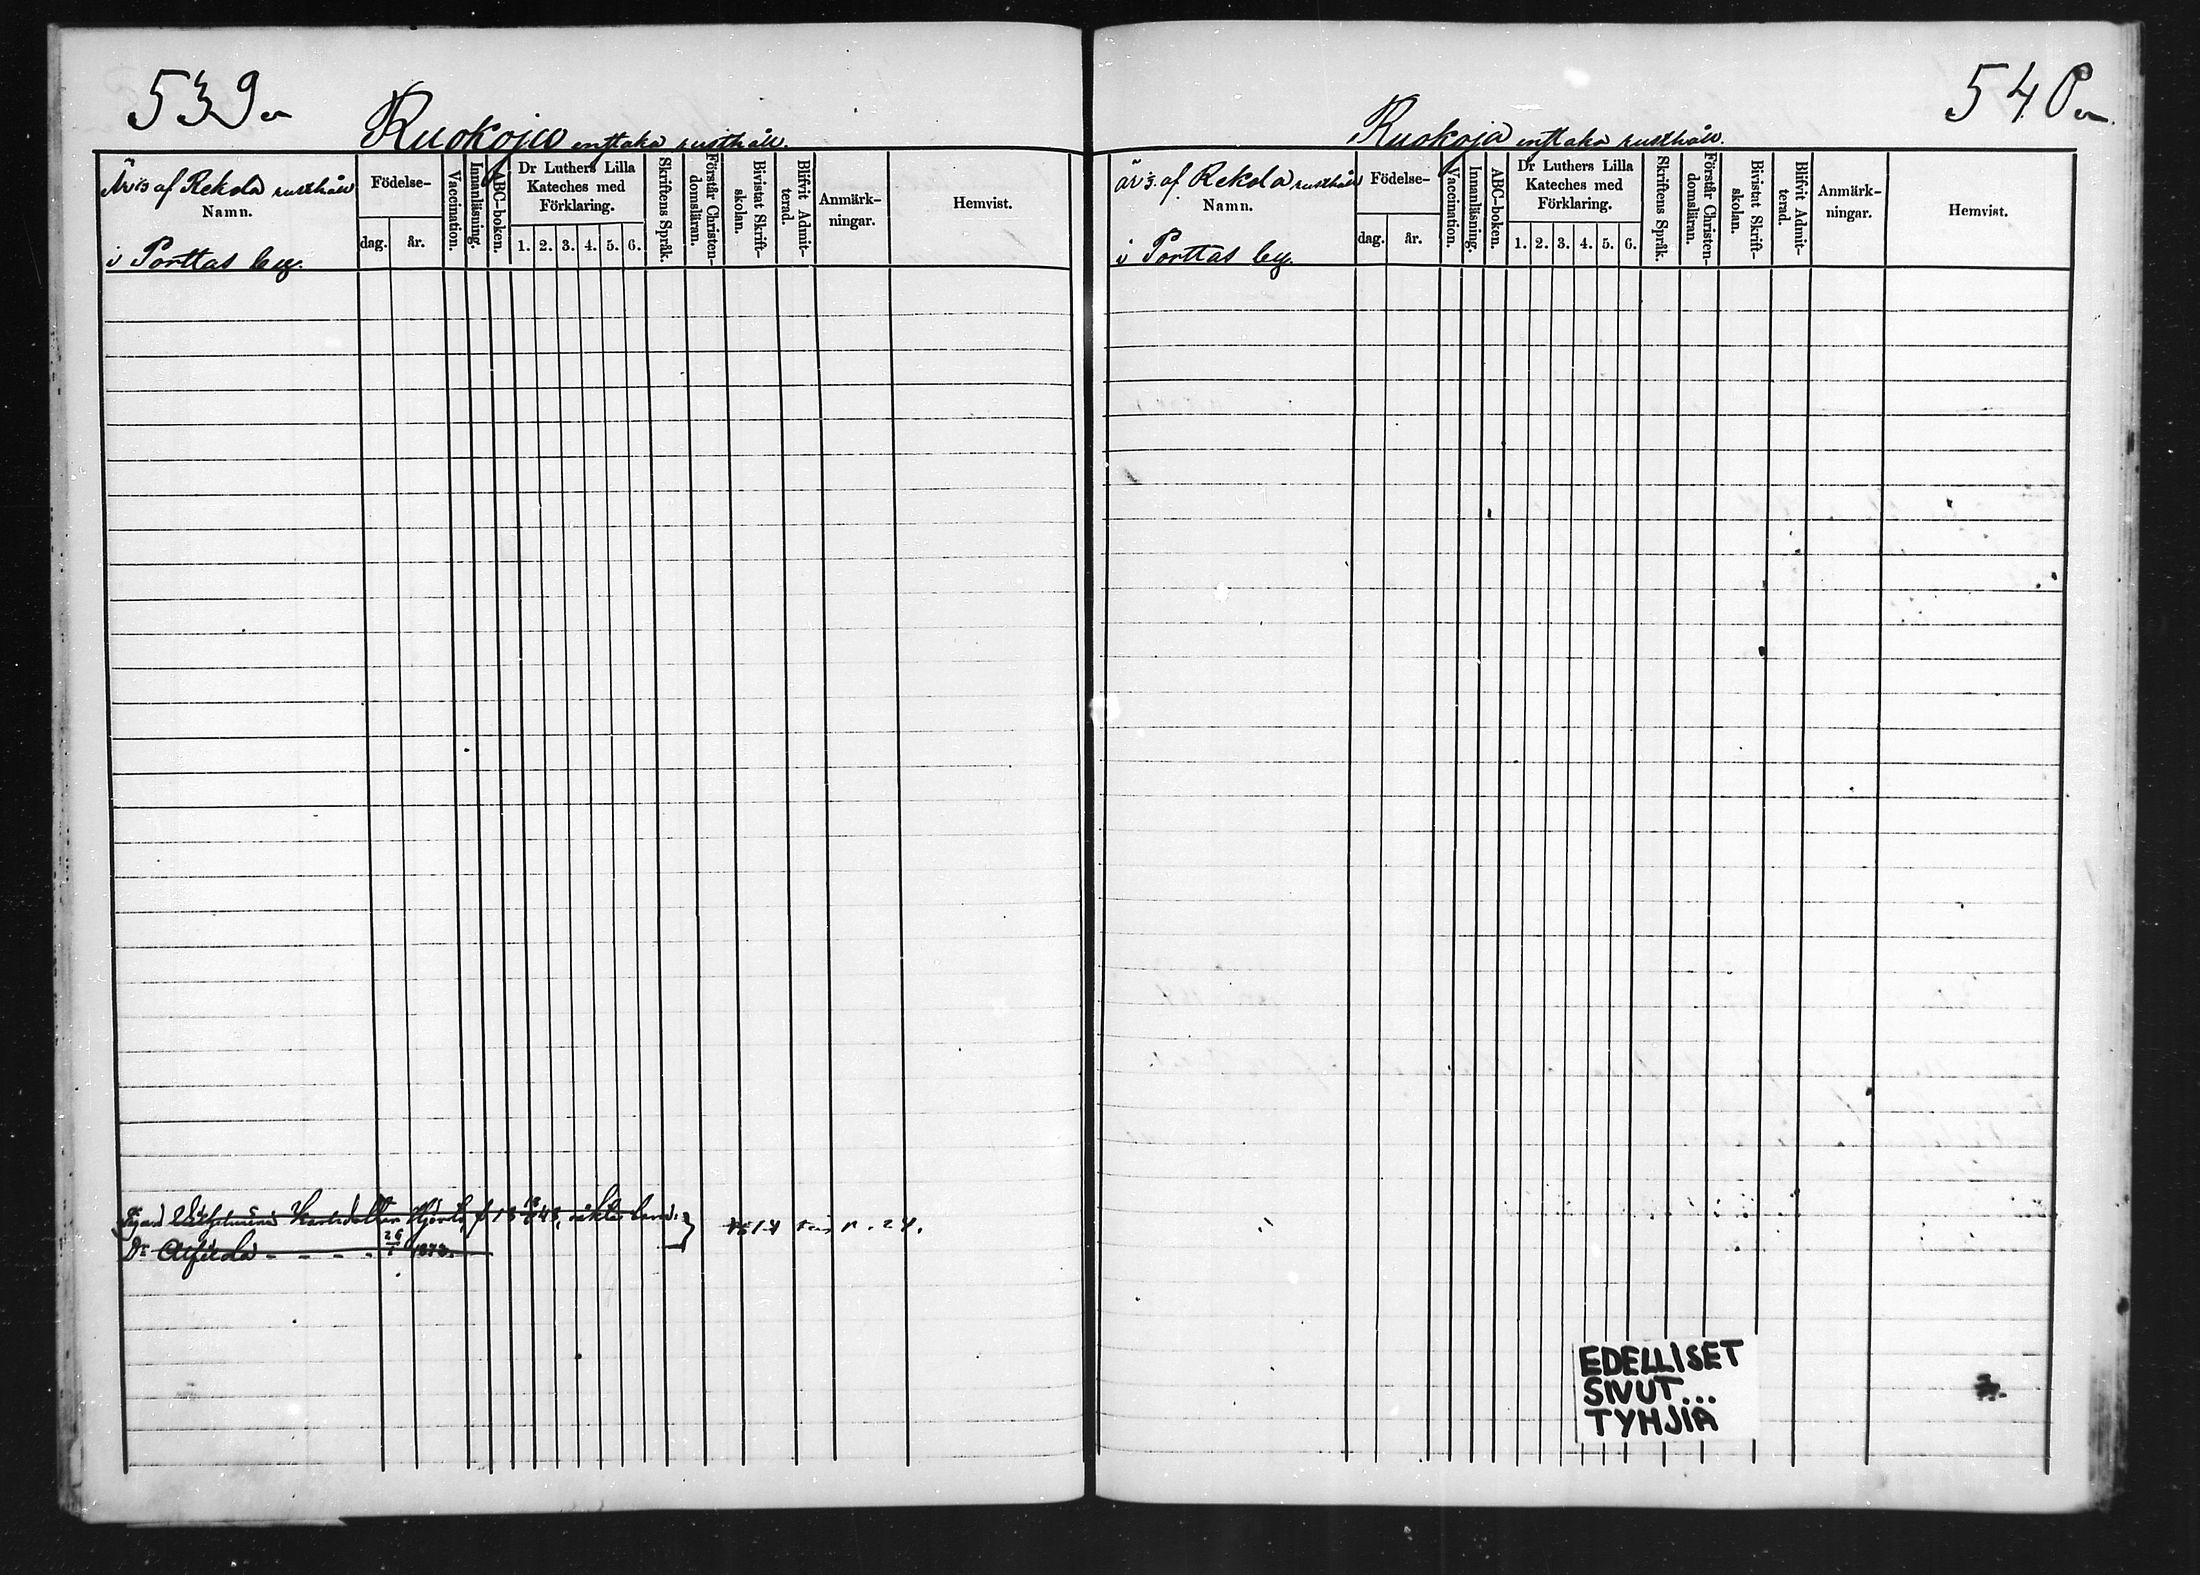 539.
Ruokoja enstaka rusthåll.
är ⅓ af Rekola rusthåll
Namn.
i Porttas by.
Födelse-
dag. år.
Vaccination.
Innanläsning.
ABC-boken.
Dr Luthers Lilla
Kateches med
Förklaring.
1. 2. 3. 4. 5. 6.
Skriftens Språk.
Förstår Christen-
domsläran.
Bivistat Skrift-
skolan.
Blifvit Admit-
terad.
Anmärk-
ningar.
Hemvist.
Karlsdotter Hjort, f 18 48,
Dr - - - - 1873.
540.
Ruokoja enstaka rusthåll.
är ⅓ af Rekola rusthåll
Namn.
i Porttas by.
Födelse-
dag. år.
Vaccination.
Innanläsning.
ABC-boken.
Dr Luthers Lilla
Kateches med
Förklaring.
1. 2. 3. 4. 5. 6.
Skriftens Språk.
Förstår Christen-
domsläran.
Bivistat Skrift-
skolan.
Blifvit Admit-
terad.
Anmärk-
ningar.
Hemvist.
EDELLISET
SIVUT...
TYHJIÄ